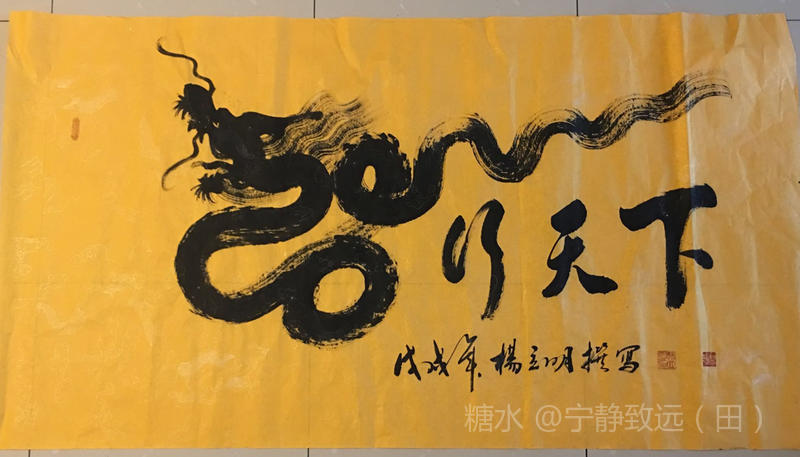 行天下
戊戌年 楊立明撰写
糖水 @宁静致远（田）